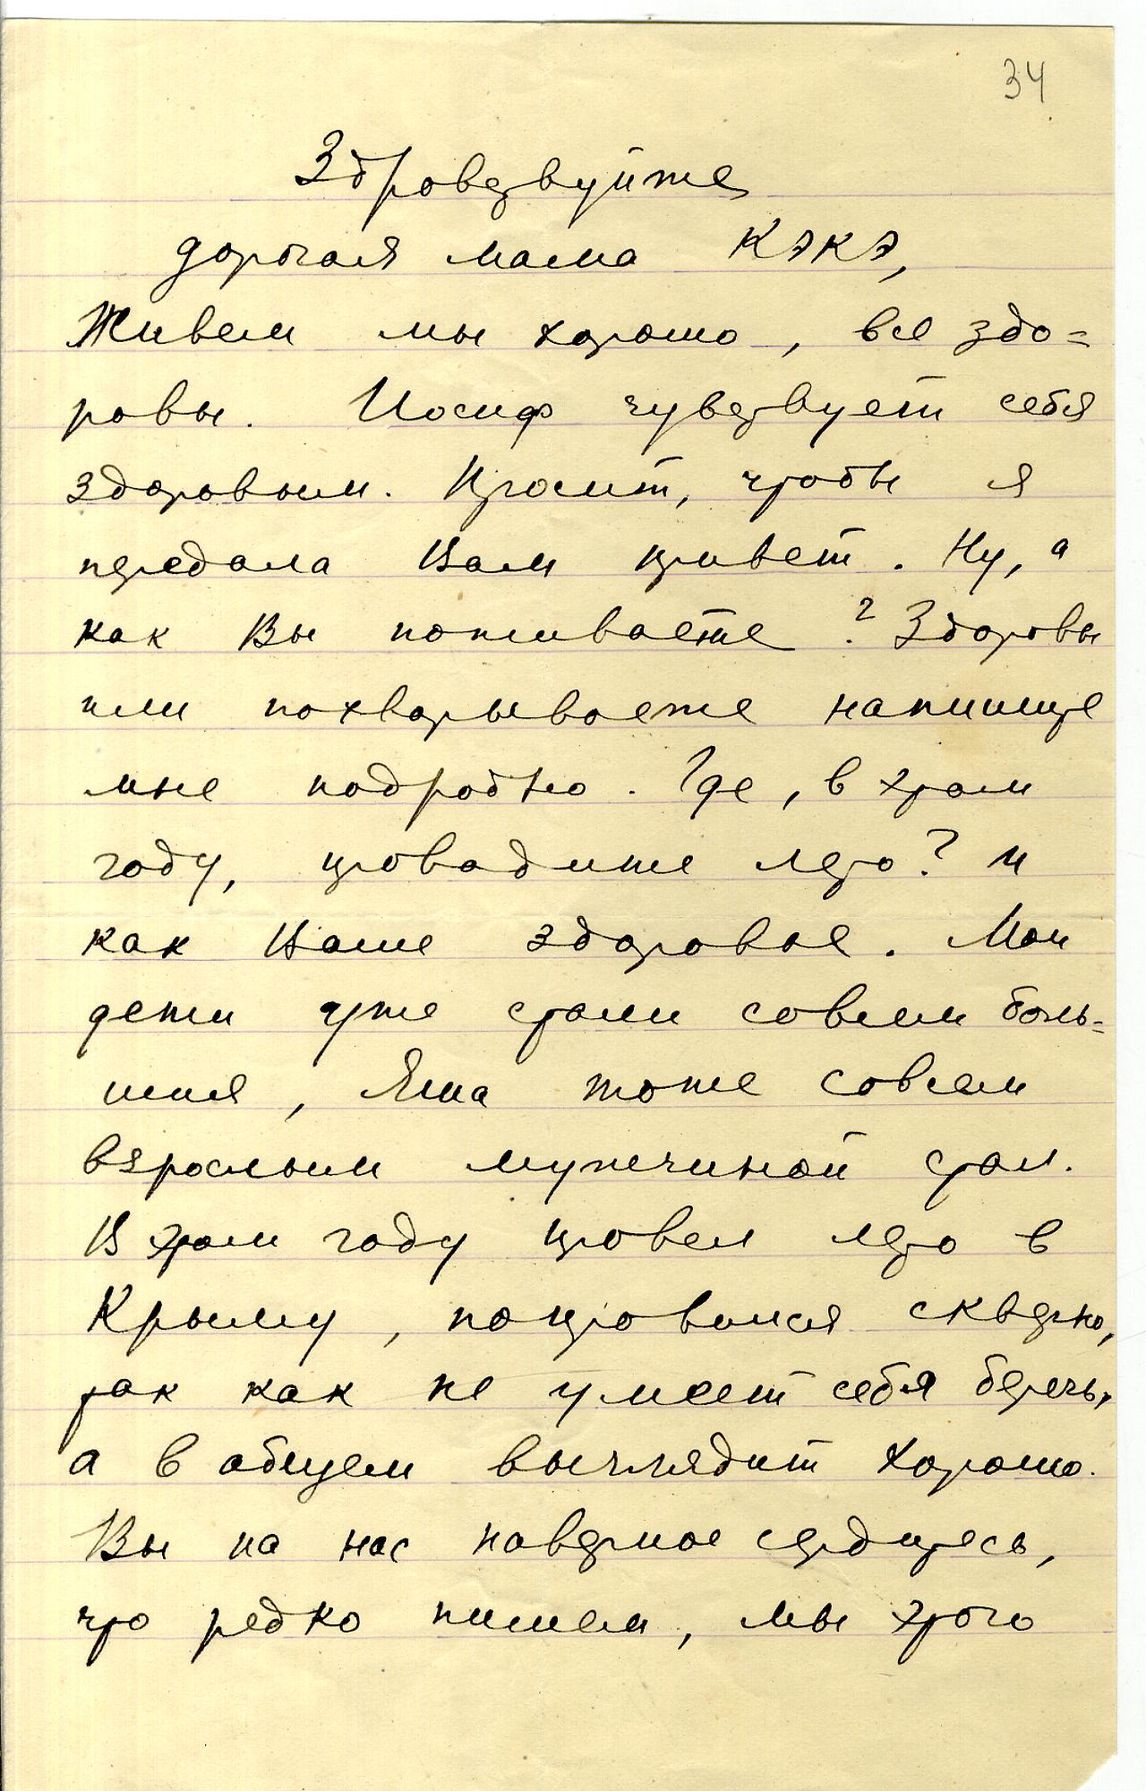 34
Здроветвуйте
дорогая мама Кэкэ,
Живем мы хорошо, все здо=
ровы. Иосиф чуветвует себя
здоровым. Просит, чтобы я
передала Вам привет. Ну, а
как Вы поживаете? Здоровы
или похварываете напишите
мне подробно. Где, в этом
году, проводите лето? и
как Ваше здоровье. Мои
дети уже стали совсем боль=
шия, Яша тоже совсем
взрослым мужчиной стал.
В этом году провел лето в
Крыму, попровился скверно,
так как не умеет себя беречь,
а в общем выглядит хорошо.
Вы на нас наверное сердитесь,
что редко пишем, мы этого